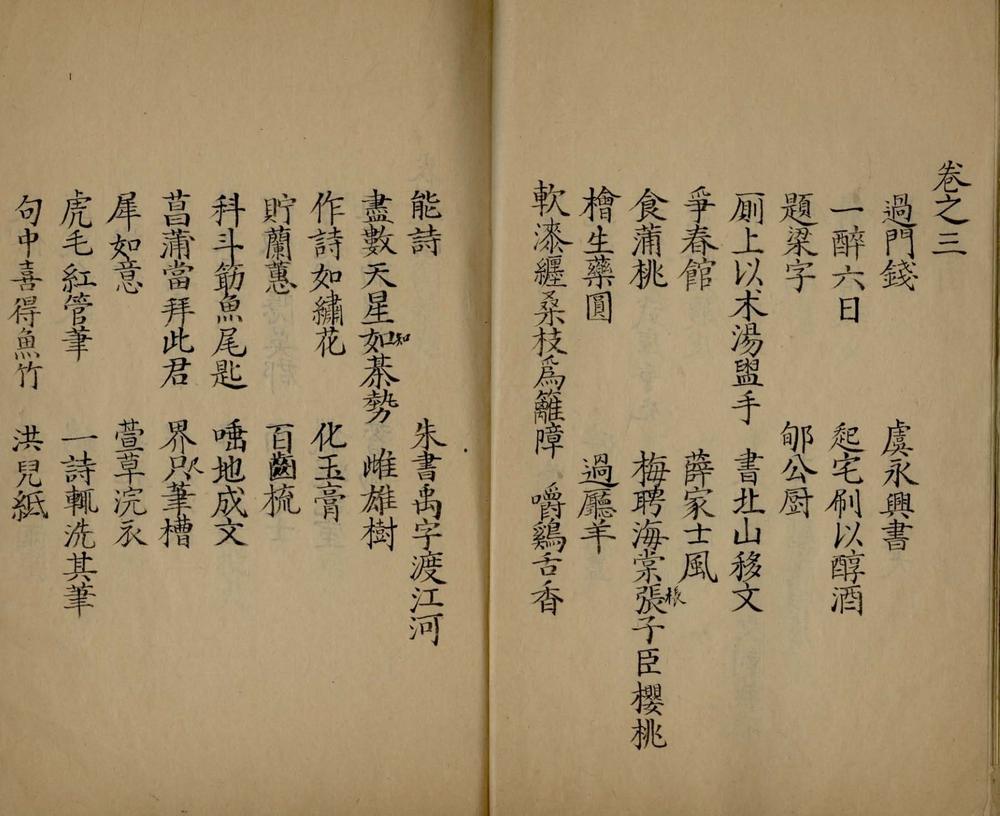 卷之三
過門錢 虞永興書
一醉六日 起宅刷以醇酒
題梁字 郇公厨
厠上以术湯盥手 書北山移文
爭春館 薛家士風
食蒲桃 梅聘海棠張棖子臣櫻桃
檜生藥圓 過廳羊
軟漆纏桑枝爲籬障 嚼鷄舌香
能詩 朱書禹字渡江河
盡數天星如知棊勢 雌雄樹
作詩如繡花 化玉膏
貯蘭蕙 百齒梳
科斗筯魚尾匙 唾地成文
菖蒲當拜此君 界尺筆槽
犀如意 萱草浣衣
虎毛紅管筆 一詩輒洗其筆
句中喜得魚竹 洪兒紙